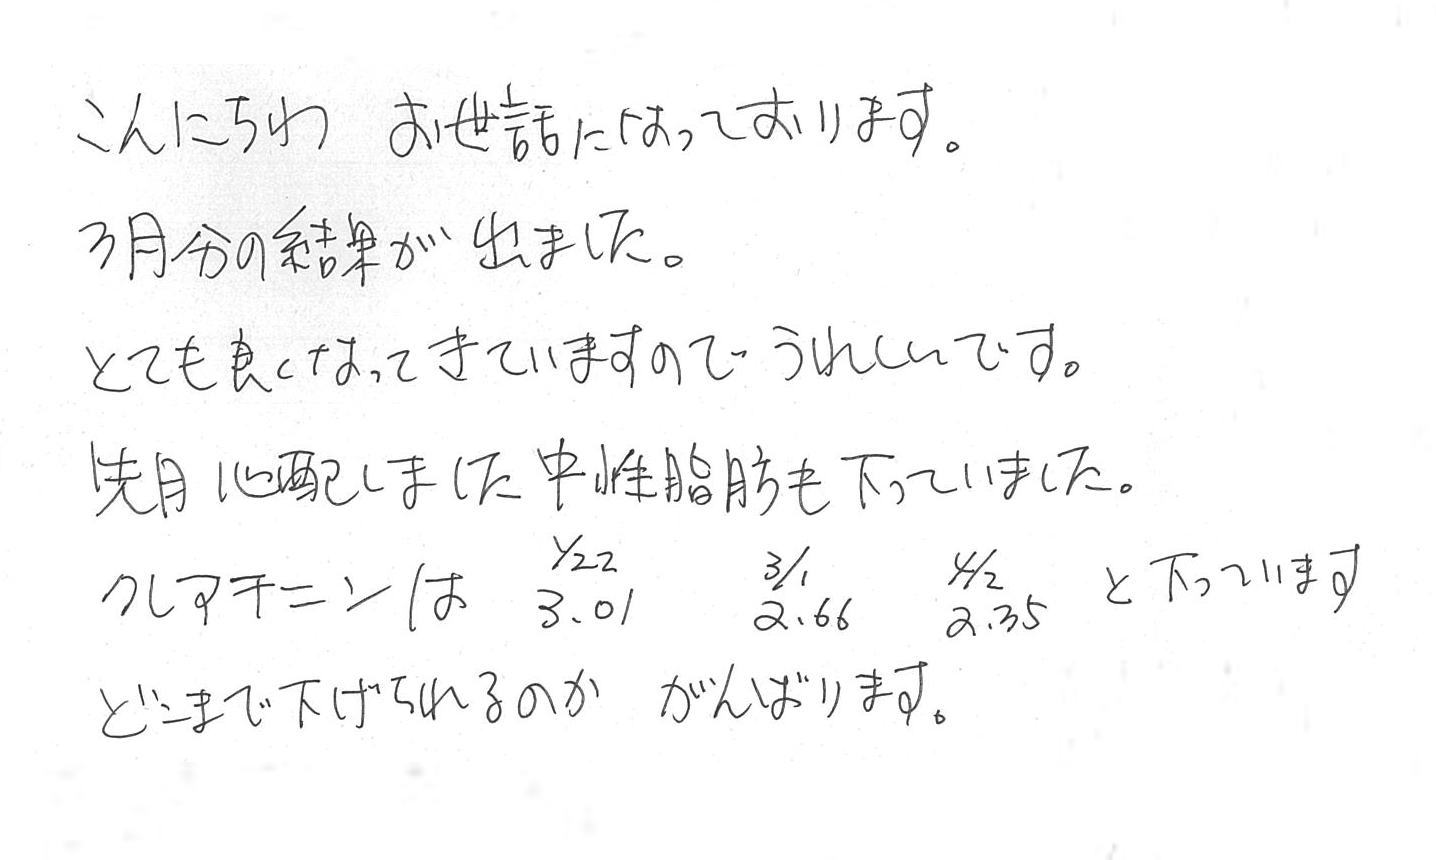 こんにちわ お世話になっております。
3月分の結果が出ました。
とても良くなってきていますのでうれしいです。
先月心配しました中性脂肪も下っていました。
1/22 3/1 4/2
クレアチニンは 3.01 2.66 2.35 と下っています
どこまで下げられるのか がんばります。